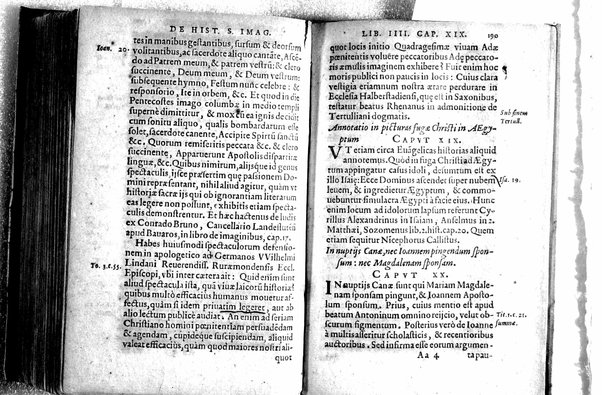 DE HIST. S. IMAG.
tes in manibus gestantibus, sursum & deorsum
Ioan. 20. volitantibus, ac sacerdote aliquo cantāte, Ascē
do ad Patrem meum, & patrem vestrū: & clero
succinente, Deum meum, & Deum vestrum:
subsequente hymno, Festum nunc celebre: &
responsorio, Ite in orbem, &c. Et quod in die
Pentecostes imago columbæ in medio templi
superne dimittitur, & mox ea ignis decidit
cum sonitu aliquo, qualis bombardatum esse
solet, sacerdote canente, Accipite Spiritū sanctū
&c. Quorum remiseritis peccata &c. & clero
succinente, Apparuerunt Apostolis dispartitæ
linguæ, &c. Quibus nimirum, aliisque id genus
spectaculis, iisque præsertim quæ passionem Do
mini repræsentant, nihil aliud agitur, quàm vt
historiæ sacræ iis qui ob ignorantiam literarum
eas legere non possunt, exhibitis etiam specta-
culis demonstrentur. Et hæc hactenus de ludis
ex Conrado Bruno, Cancellario Landeshutēsi
apud Bauaros, in libro de imaginibus, cap. 17.
Habes huiusmodi spectaculorum defensio-
nem in apologetico ad Germanos VVilhelmi
Tit. 3. c. 55. Lindani Reuerendiss. Ruræmondensis Eccl.
Episcopi, vbi inter cætera ait: Quid enim sunt
aliud spectacula ista, quā viuæ laicorū historiæ
quibus multò efficacius humanus mouetur af-
fectus, quàm si idem priuatim legeret, aut ab
alio lectum publicè audiat. An enim ad seriam
Christiano homini pœnitentiam persuadēdam
& agendam, cupideque suscipiendam, aliquid
valeat efficacius, quàm quod maiores nostri ali-
quot
LIB. IIII. CAP. XIX. 190
quot locis initio Quadragesimæ viuam Adæ
pœnitentis voluère peccatoribus Adę pecca­to-
ris æmulis imaginem exhibere? Fuit enim hoc
moris publici non paucis in locis: Cuius clara
vestigia etiamnum nostra ætate perdurare in
Ecclesia Halberstadiensi, quę est in Saxonibus,
testatur beatus Rhenanus in admonitione de
Tertulliani dogmatis. Sub finem Tertull.
Annotatio in picturas fugæ Christi in Æ­gy-
ptum CAPVT XIX.
VT etiam circa Euāgelicas historias aliquid
annotemus. Quòd in fuga Christi ad Ægy
ptum appingatur casus idoli, desumtum est ex
illo Isaiæ: Ecce Dominus ascendet super nubem Isa. 19.
leuem, & ingredietur Ægyptum, & commo-
uebuntur simulacra Ægyptì à facie eius. Hunc
enim locum ad idolorum lapsum referunt Cy-
rillus Alexandrinus in Isaiam, Anselmus in 2.
Matthæi, Sozomenus lib. 2. hist. cap. 20. Quem
etiam sequitur Nicephorus Callistus.
In nuptijs Canæ, nec Ioannem pingendum spon-
sum: nec Magdalenam sponsam.
CAPVT XX.
IN nuptijs Canæ sunt qui Mariam Magdale-
nam sponsam pingunt, & Ioannem Aposto-
lum sponsum. Prius, cuius mentio est apud
beatum Antoninum omnino reijcio, velut ob- Tit. 1. c. 21. summæ.
scurum figmentum. Posterius verò de Ioanne
à multis asseritur scholasticis, & recentioribus
auctoribus. Sed infirma esse eorum argumen-
Aa 4 tapau-